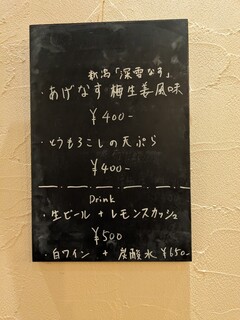 新潟「深雪なす」
・あげなす 梅生姜風味
¥400-
・とうもろこしの天ぷら
¥400-
Drink
・生ビール + レモンスカッシュ
¥500
・白ワイン + 炭酸水 ¥650-